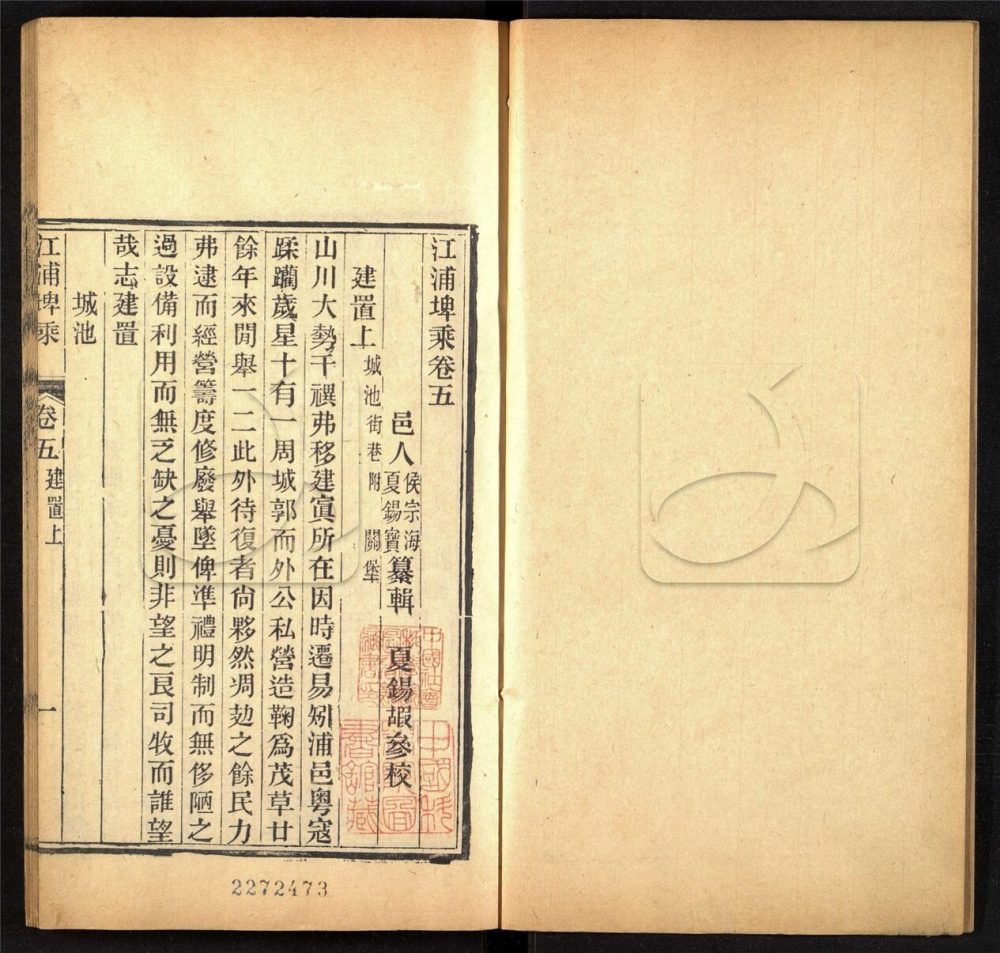 江浦埤乘卷五
邑人侯宗海夏錫寶纂輯　夏錫嘏參校
建置上　城池　街巷附　關堡
山川大勢千禩弗移建寘所在因時遷易矧浦邑粵寇
蹂躪歲星十有一周城郭而外公私營造鞠爲茂草廿
餘年來閒舉一二此外待復者尚夥然凋劫之餘民力
弗逮而經營籌度修廢舉墜俾準禮明制而無侈陋之
過設備利用而無乏缺之憂則非望之良司牧而誰望
哉志建置
城池
江浦埤乘　卷五　建置上　一
2272473